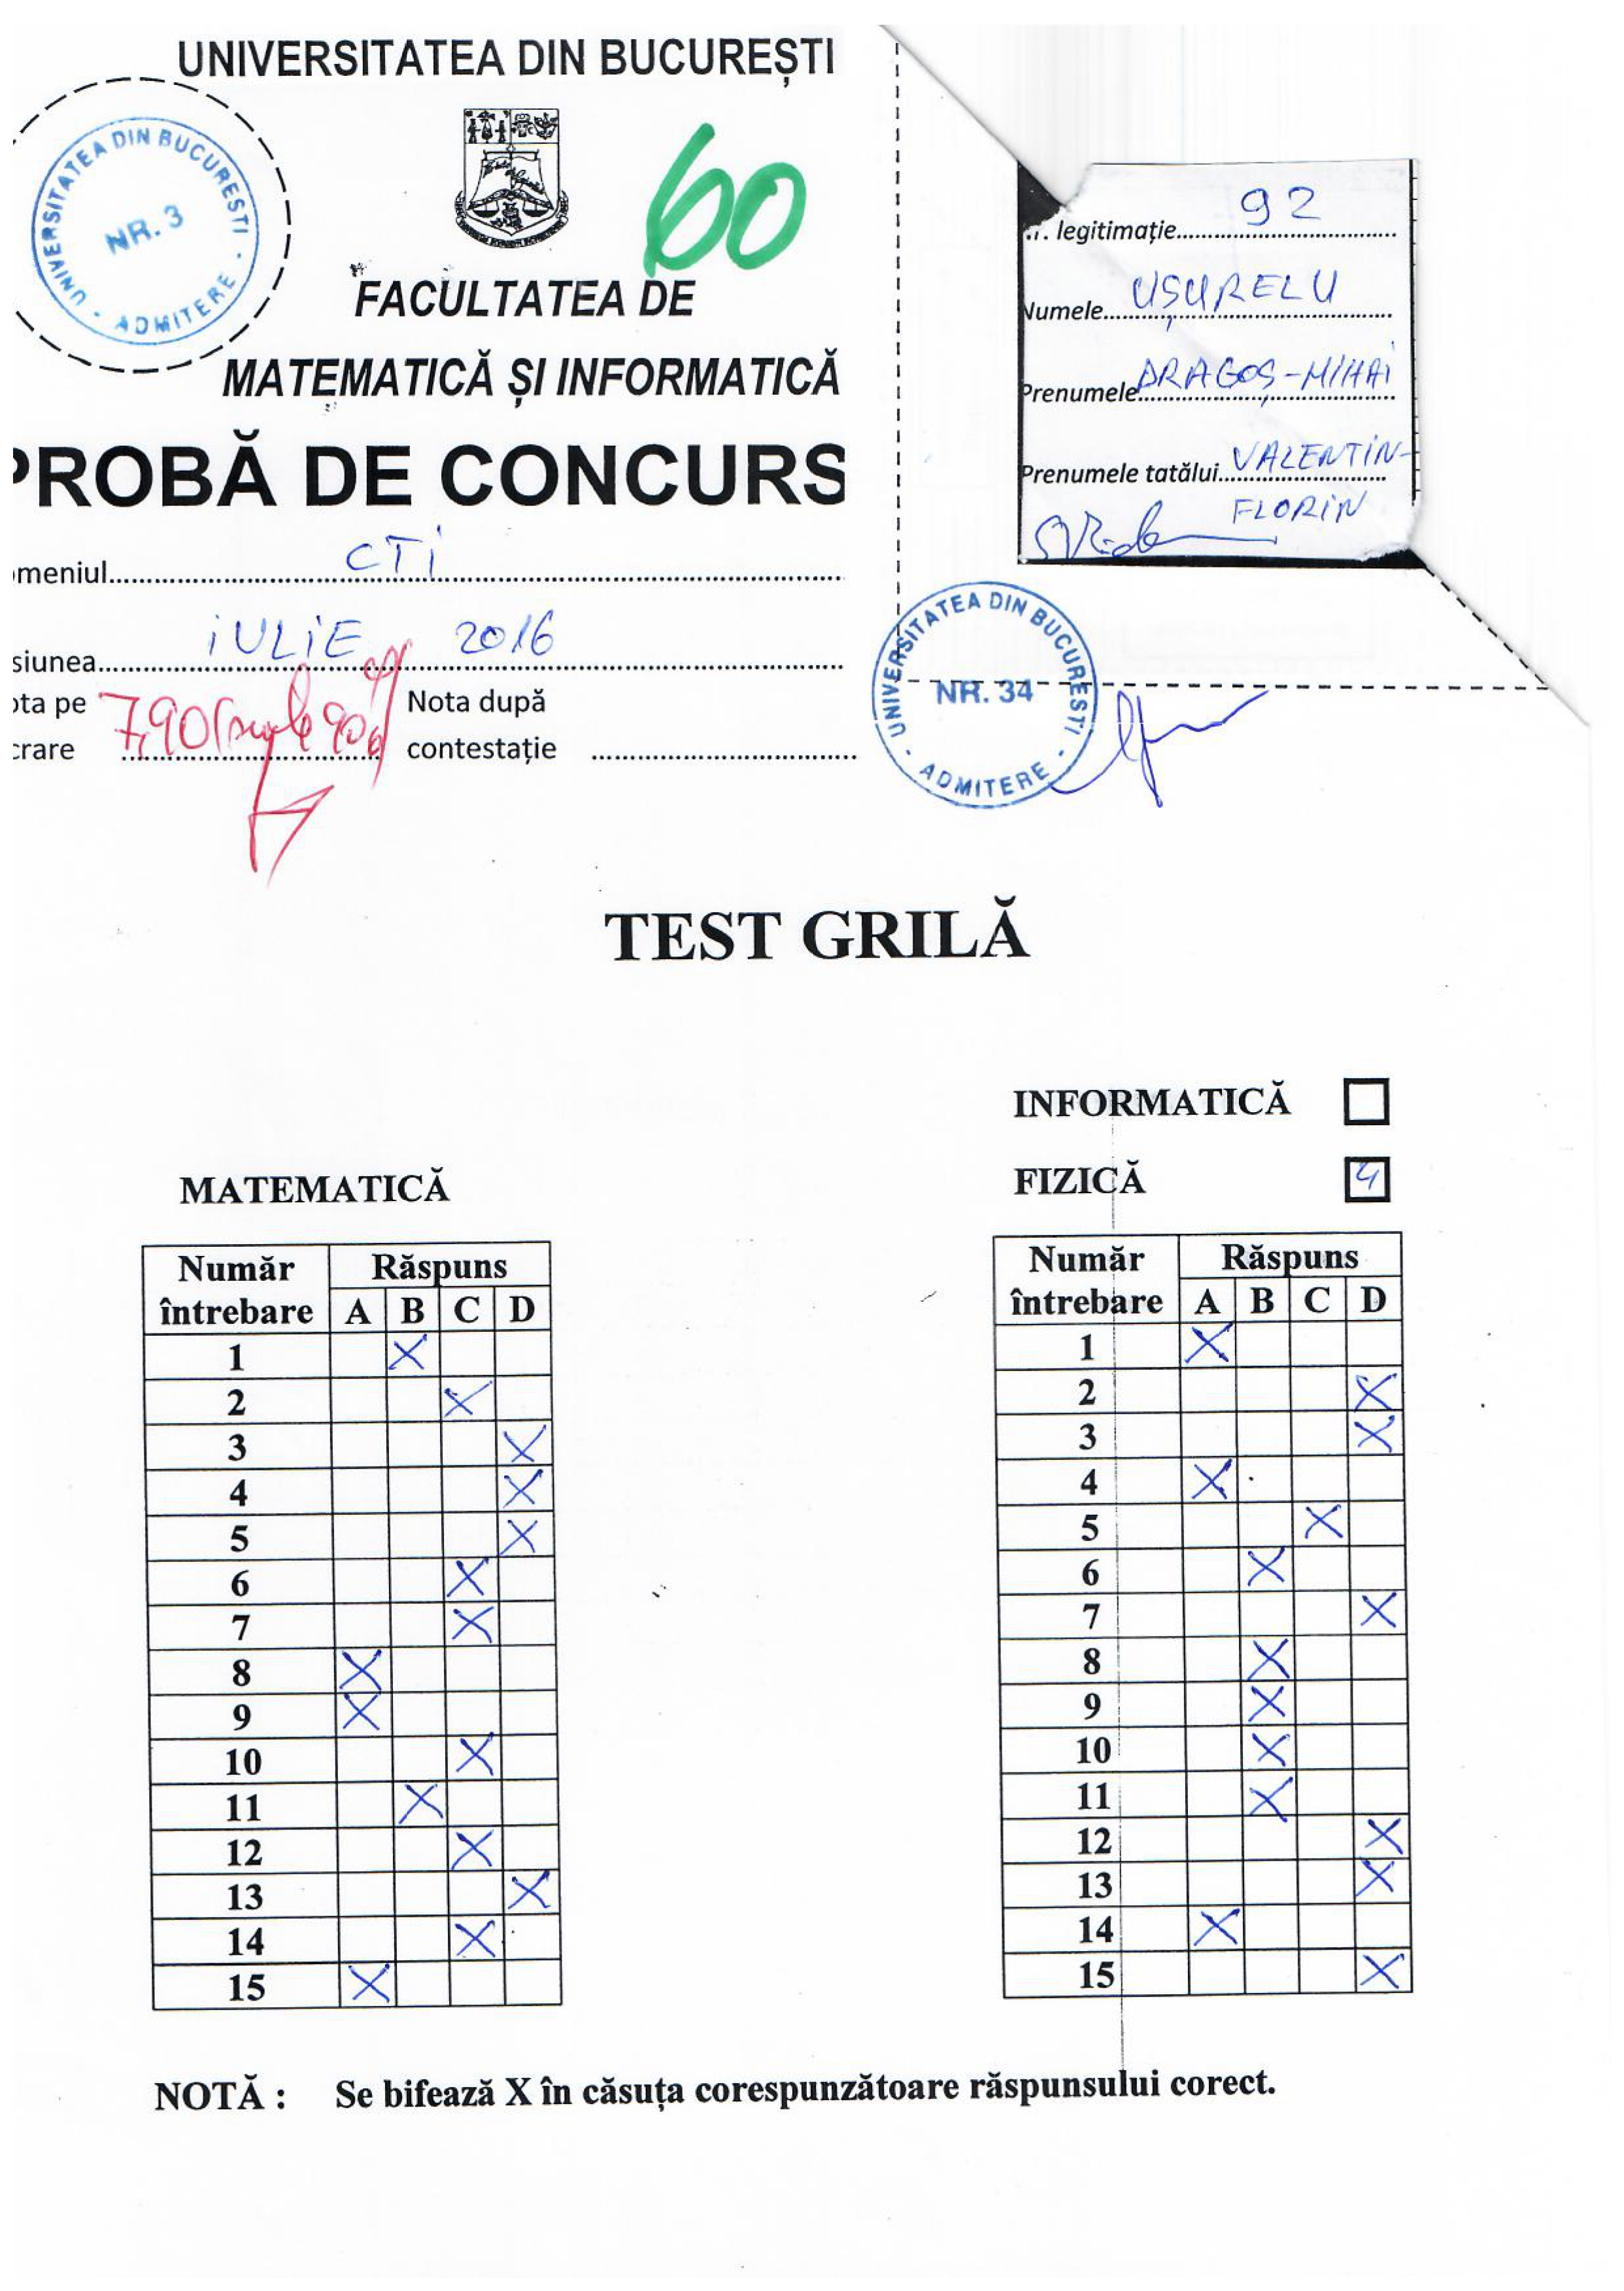 UNIVERSITATEA DIN BUCUREȘTI
UNIVERSITATEA DIN BUCURESTI
NR. 3
- ADMITERE -
60
FACULTATEA DE
MATEMATICĂ ȘI INFORMATICĂ
PROBĂ DE CONCURS
meniul CTI
siunea IULIE 2016
ota pe
crare 7,90
Nota după
contestație
legitimație 92
Numele UȘURELU
Prenumele DRAGOȘ-MIHAI
Prenumele tatălui VALENTIN-
FLORIN
UNIVERSITATEA DIN BUCURESTI
NR. 34
- ADMITERE -
TEST GRILĂ
INFORMATICĂ
FIZICĂ 4
MATEMATICĂ
Număr întrebare Răspuns
A B C D
1 X
2 X
3 X
4 X
5 X
6 X
7 X
8 X
9 X
10 X
11 X
12 X
13 X
14 X
15 X
Număr întrebare Răspuns
A B C D
1 X
2 X
3 X
4 X
5 X
6 X
7 X
8 X
9 X
10 X
11 X
12 X
13 X
14 X
15 X
NOTĂ : Se bifează X în căsuța corespunzătoare răspunsului corect.